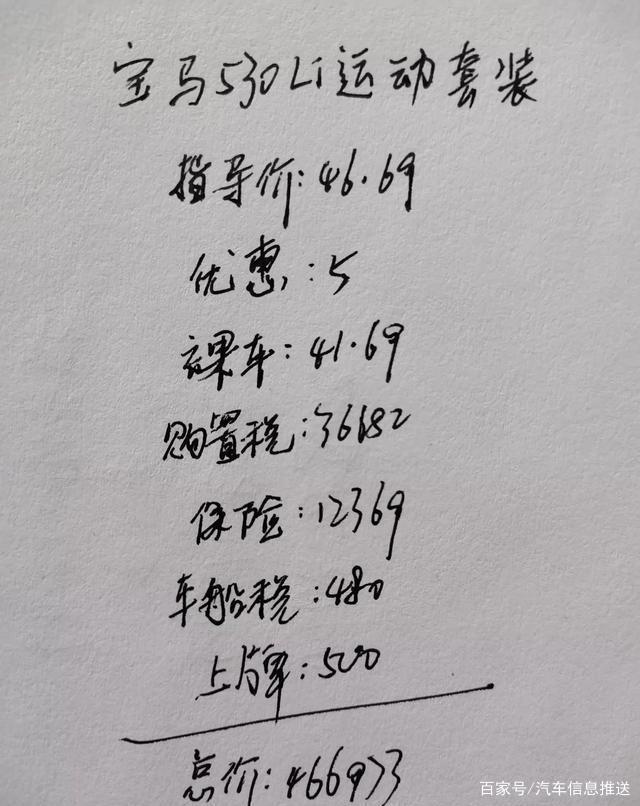 宝马530Li运动套装
指导价:46.69
优惠:5
裸车:41.69
购置税:36682
保险:12369
车船税:480
上牌:500
总价:466973
百家号/汽车信息推送